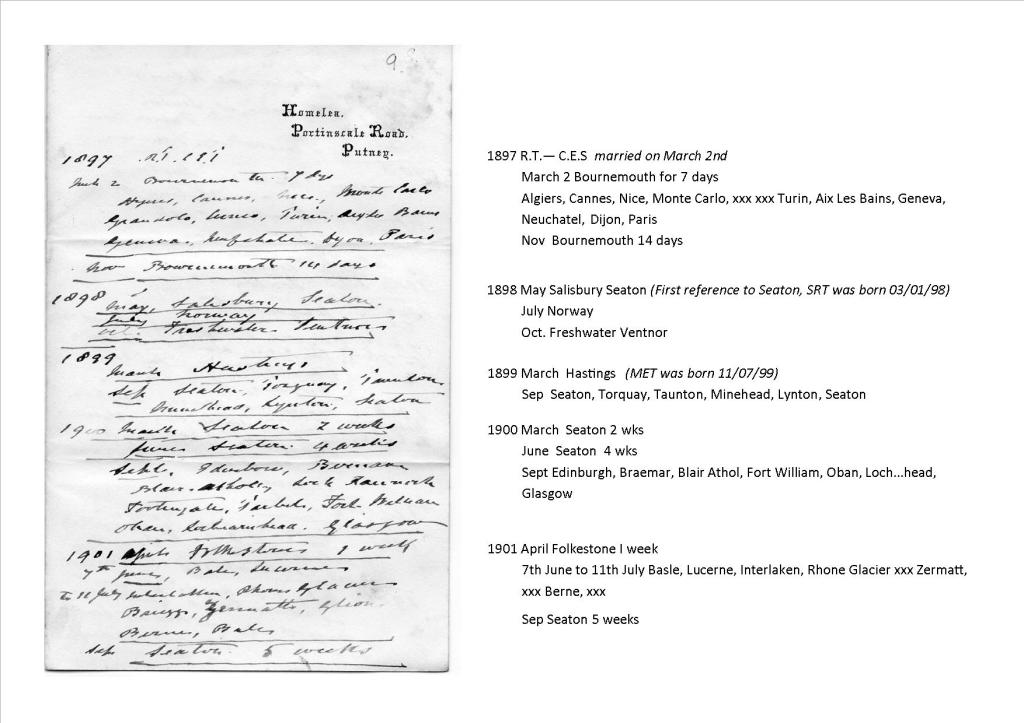 9.
Homelea,
Portinscale Road,
Putney.
1897 R.T. C.E.S
March 2 Bournemouth. 7 days
Hyeres, Cannes, Nice, Monte Carlo
Turin, Aix les Bains
Geneva, Neufchatel. Dijon. Paris
Nov Bournemouth 14 days
1898 May, Salisbury Seaton.
July Norway
Oct. Freshwater Ventnor
1899
March Hastings
Sep Seaton, Torquay, Taunton
Minehead, Lynton, Seaton
1900 March Seaton 2 weeks
June Seaton 4 weeks
Sept. Edinboro, Braemar
Blair-Atholl, Loch Rannoch
Fortingale, Tarbet, Fort William
Oban, Lochearnhead. Glasgow
1901 April Folkestone 1 week
7th June, Bale, Lucerne
to 11 July Interlaken, Rhone Glacier
Zermatt, Glion.
Berne, Bale
Sep Seaton 5 weeks
1897 R.T.— C.E.S married on March 2nd
March 2 Bournemouth for 7 days
Algiers, Cannes, Nice, Monte Carlo, xxx xxx Turin, Aix Les Bains, Geneva,
Neuchatel, Dijon, Paris
Nov Bournemouth 14 days
1898 May Salisbury Seaton (First reference to Seaton, SRT was born 03/01/98)
July Norway
Oct. Freshwater Ventnor
1899 March Hastings (MET was born 11/07/99)
Sep Seaton, Torquay, Taunton, Minehead, Lynton, Seaton
1900 March Seaton 2 wks
June Seaton 4 wks
Sept Edinburgh, Braemar, Blair Athol, Fort William, Oban, Loch...head,
Glasgow
1901 April Folkestone I week
7th June to 11th July Basle, Lucerne, Interlaken, Rhone Glacier xxx Zermatt,
xxx Berne, xxx
Sep Seaton 5 weeks